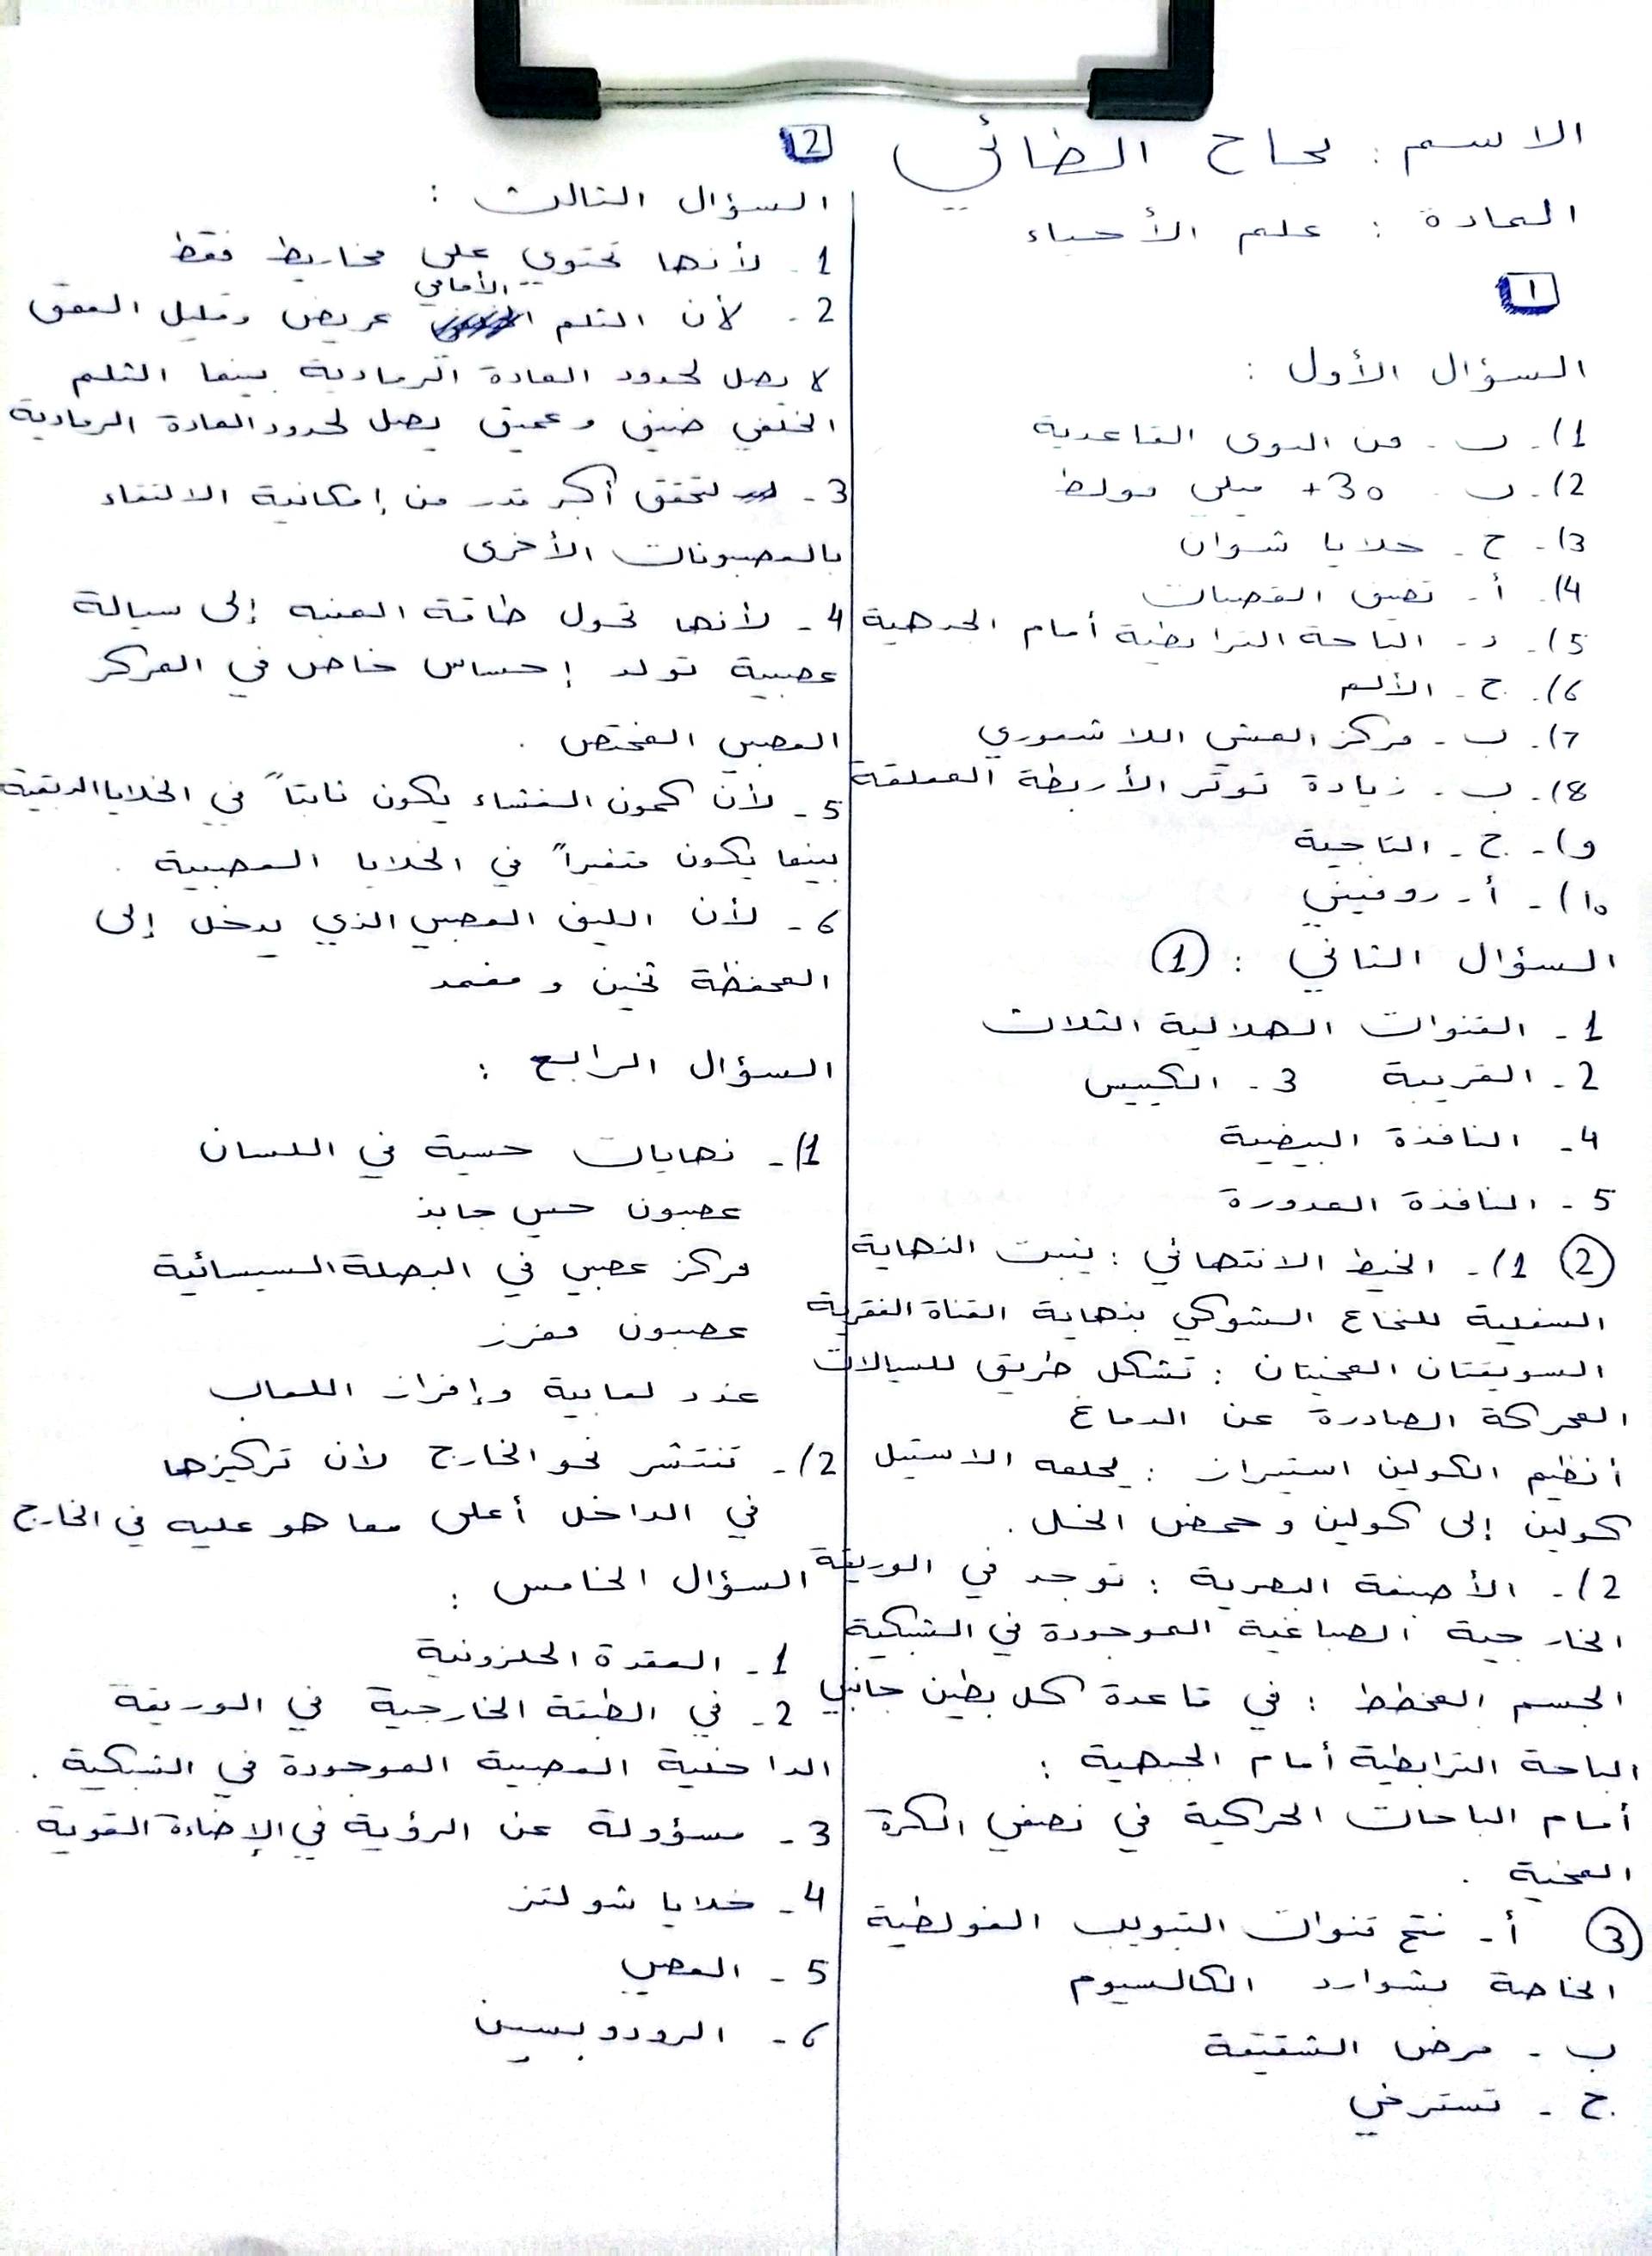 الاسم : نجاح الطائي
المادة : علم الأحياء
1
السؤال الأول :
1)- ب - من النوى القاعدية
2)- ب - +30 ميلي فولط
3)- ج - خلايا شوان
4)- أ - تضيق القصبات
5)- د - الباحة الترابطية أمام الجبهية
6)- ج - الألم
7)- ب - مركز المشي اللاشعوري
8)- ب - زيادة توتر الأربطة المعلقة
9)- ج - التاجية
10)- أ - روفيني
السؤال الثاني : 1
1 - القنوات الهلالية الثلاث
2 - القريبة 3 - الكييس
4 - النافذة البيضية
5 - النافذة المدورة
2 1)- الخيط الانتهائي : يثبت النهاية
السفلية للنخاع الشوكي بنهاية القناة الفقرية
السويقتان المخيتان : تشكل طريق للسيالات
المحركة الصادرة عن الدماغ
أنظيم الكولين استيراز : يحلمه الاستيل
كولين إلى كولين وحمض الخل .
2)- الأصبغة البصرية : توجد في الوريقة
الخارجية الصباغية الموجودة في الشبكية
الجسم المخطط : في قاعدة كل بطين جانبي
الباحة الترابطية أمام الجبهية :
أمام الباحات الحركية في نصفي الكرة
المخية .
3 أ - فتح قنوات التبويب الفولطية
الخاصة بشوارد الكالسيوم
ب - مرض الشقيقة
ج - تسترخي
2
السؤال الثالث :
1 - لأنها تحتوي على مخاريط فقط
2 - لأن الثلم الأمامي عريض وقليل العمق
لا يصل لحدود المادة الرمادية بينما الثلم
الخلفي ضيق وعميق يصل لحدود المادة الرمادية
3 - لتحقق أكبر قدر من إمكانية الالتقاء
بالعصبونات الأخرى
4 - لأنها تحول طاقة المنبه إلى سيالة
عصبية تولد إحساس خاص في المركز
العصبي المختص .
5 - لأن كمون الغشاء يكون ثابتاً في الخلايا الدبقية
بينما يكون متغيراً في الخلايا العصبية .
6 - لأن الليف العصبي الذي يدخل إلى
المحفظة ثخين و مغمد
السؤال الرابع :
1)- نهايات حسية في اللسان
عصبون حسي جابذ
مركز عصبي في البصلة السيسائية
عصبون مفرز
غدد لعابية وإفراز اللعاب
2)- تنتشر نحو الخارج لأن تركيزها
في الداخل أعلى مما هو عليه في الخارج
السؤال الخامس :
1 - العقدة الحلزونية
2 - في الطبقة الخارجية في الوريقة
الداخلية العصبية الموجودة في الشبكية .
3 - مسؤولة عن الرؤية في الإضاءة القوية
4 - خلايا شولتز
5 - العصي
6 - الرودوبسين